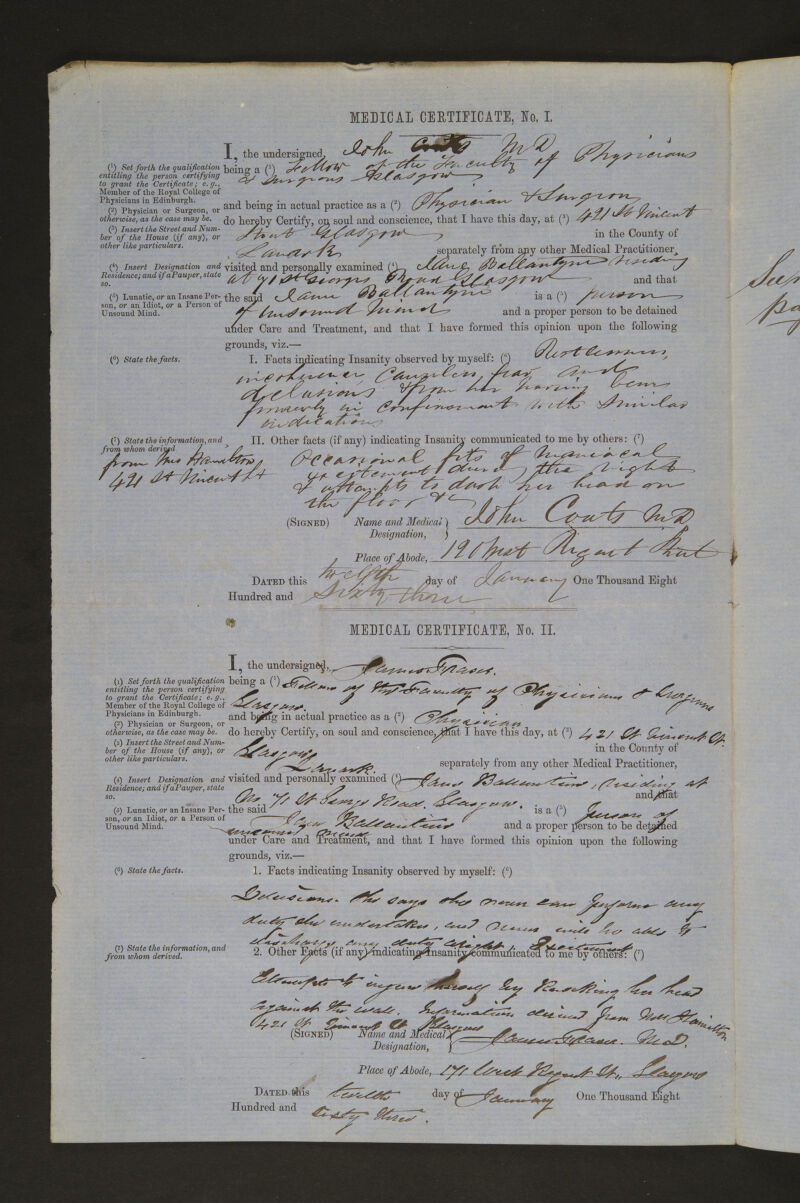 MEDICAL CERTIFICATE, No. I.
I, the undersigned, John Coats MD
(1) Set forth the qualification entitling the person certifying to grant the Certificate; e.g., Member of the Royal College of Physicians in Edinburgh.
being a (1) Fellow of the Faculty of Physicians
& Surgeons Glasgow
(2) Physician or Surgeon, or otherwise, as the case may be.
and being in actual practice as a (2) Physician & Surgeon
(3) Insert the Street and Number of the House (if any), or other like particulars.
do hereby Certify, on soul and conscience, that I have this day, at (3) 421 St Vincent
Street Glasgow in the County of
Lanark separately from any other Medical Practitioner,
(4) Insert Designation and Residence; and if a Pauper, state so.
visited and personally examined (4) Jane Ballantyne residing
at 71 St Georges Road Glasgow and that
(5) Lunatic, or an Insane Person, or an Idiot, or a Person of Unsound Mind.
the said Jane Ballantyne is a (5) person
of unsound mind and a proper person to be detained
under Care and Treatment, and that I have formed this opinion upon the following
grounds, viz.—
(6) State the facts.
I. Facts indicating Insanity observed by myself: (6) Restlessness,
incoherence, causeless fear and
delusions & from her having been
formerly in confinement with similar
indications
(7) State the information, and from whom derived.
II. Other facts (if any) indicating Insanity communicated to me by others: (7)
from Mrs Hamilton
421 St Vincent St
Occasional fits of maniacal
excitement during the night
& attempts to dash her head on
the floor &c
(SIGNED) Name and Medical Designation, John Coats MD
Place of Abode, 190 West Regent Street
DATED this twelfth day of January One Thousand Eight
Hundred and Sixty three
MEDICAL CERTIFICATE, No. II.
I, the undersigned, James Fraser.
(1) Set forth the qualification entitling the person certifying to grant the Certificate; e.g., Member of the Royal College of Physicians in Edinburgh.
being a (1) Fellow of the Faculty of Physicians & Surgeons
Glasgow.
(2) Physician or Surgeon, or otherwise, as the case may be.
and being in actual practice as a (2) Physician
(3) Insert the Street and Number of the House (if any), or other like particulars.
do hereby Certify, on soul and conscience, that I have this day, at (3) 421 St Vincent St.
Glasgow in the County of
Lanark. separately from any other Medical Practitioner,
(4) Insert Designation and Residence; and if a Pauper, state so.
visited and personally examined (4) Jane Ballantine, residing at
No 71 St Georges Road, Glasgow. and that
(5) Lunatic, or an Insane Person, or an Idiot, or a Person of Unsound Mind.
the said Jane Ballantine is a (5) person of
unsound mind and a proper person to be detained
under Care and Treatment, and that I have formed this opinion upon the following
grounds, viz.—
(6) State the facts.
1. Facts indicating Insanity observed by myself: (6)
Delusions. She says she never can perform any
duty she undertakes, and never will be able to
discharge any duty aright. Excitement
(7) State the information, and from whom derived.
2. Other Facts (if any) indicating Insanity communicated to me by others: (7)
Attempts to injure herself by knocking her head
against the wall. Information derived from Mrs Hamilton
421 St Vincent St Glasgow
(SIGNED) Name and Medical Designation, James Fraser. M.D.
Place of Abode, 171 West Regent St., Glasgow
DATED this twelfth day of January One Thousand Eight
Hundred and sixty three.